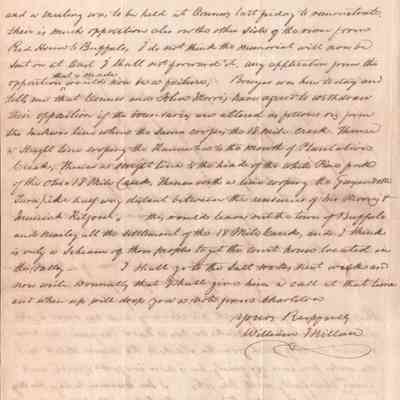 and a meeting was to be held at Conners last friday to remonstrate.
there is much opposition also on the other side of the river from
Red House to Buffalo, I do not think the memorial will now be
sent on at last I shall not forward it. any application from the
that is made
opposition would now be a failure, Bowyer was here to day and
tells me that Conner and John Morris have agreed to withdraw
their opposition if the boundary was altered as follows viz from
the Indian line where the same crosses the 18 Mile Creek. Thence
a straight line crossing the Kanawha to the mouth of Plantation
Creek, Thence a straight line to the head of the white Pine fork
of the other 18 Mile Creek, Thence with a line crossing the Guyandotte
Turnpike half way distant between the residence of Wm Morris &
Kilgore, this would leave with the town of Buffalo
and nearly all the settlement of the 18 Mile Creek, and I think
is only a scheme of those people to get the court house located in
the Valley I shall go to the Salt Works next week and
now write Donnally that I shall give him a call at that time
and when up will drop you a note from Charleston
Yours Respectfully
William Millan